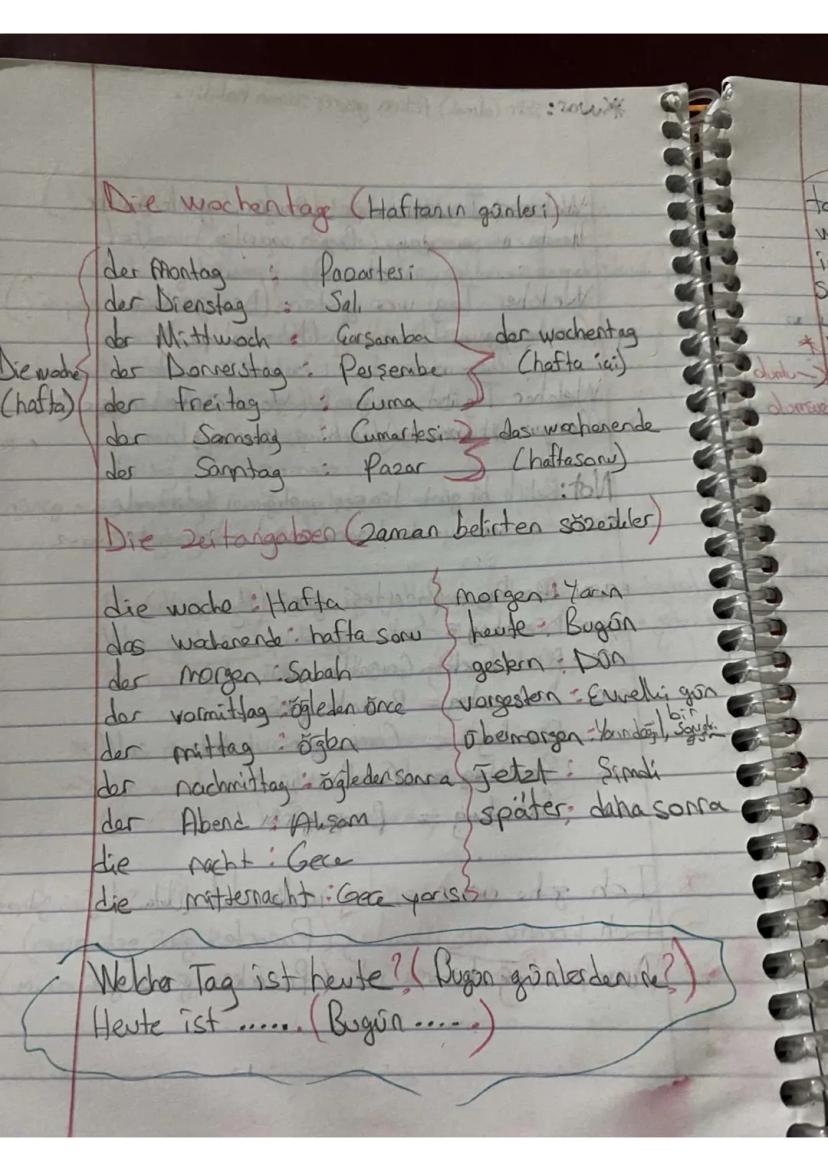 Die wochentag (Haftanın günleri)
der Montag : Pazartesi
der Dienstag : Salı
der Mittwoch : Çarşamba
der Donnerstag : Perşembe
der freitag : Cuma
der Samstag : Cumartesi
der Sonntag : Pazar
der wochentag
(hafta içi)
das wochenende
(haftasonu)
Die woche
(hafta)
Die zeitangaben (zaman belirten sözcükler)
die woche : Hafta
das wochenende : hafta sonu
der morgen : Sabah
der vormittag : öğleden önce
der mittag : öğlen
der nachmittag : öğleden sonra
der Abend : Akşam
die nacht : Gece
die mitternacht : Gece yarısı
morgen : Yarın
heute : Bugün
gestern : Dün
vorgestern : Evvelki gün
übermorgen : Yarın değil, bir
jetzt : Şimdi
später : daha sonra
Welcher Tag ist heute? (Bugün günlerden ne?)
Heute ist ...... (Bugün ......)